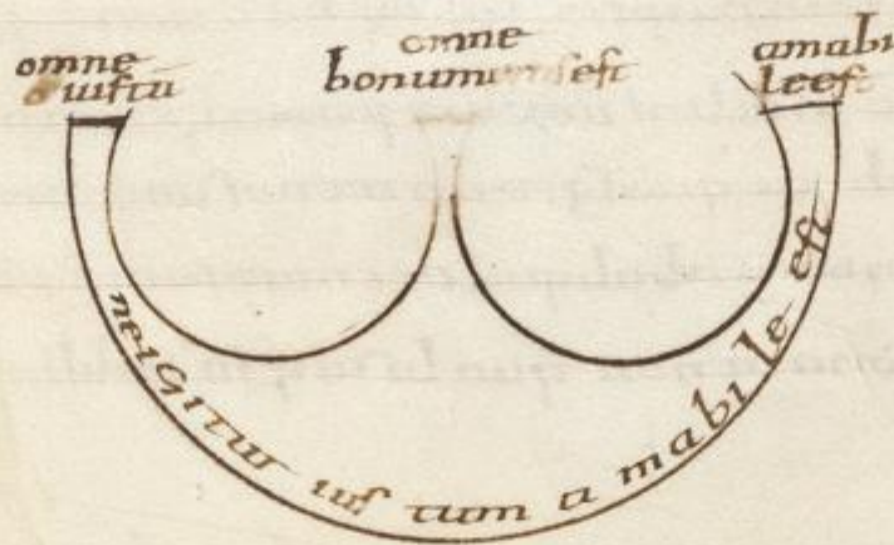 omne
iustū
omne
bonum est
amabi
leest
neigitur ius tum a mabi le est